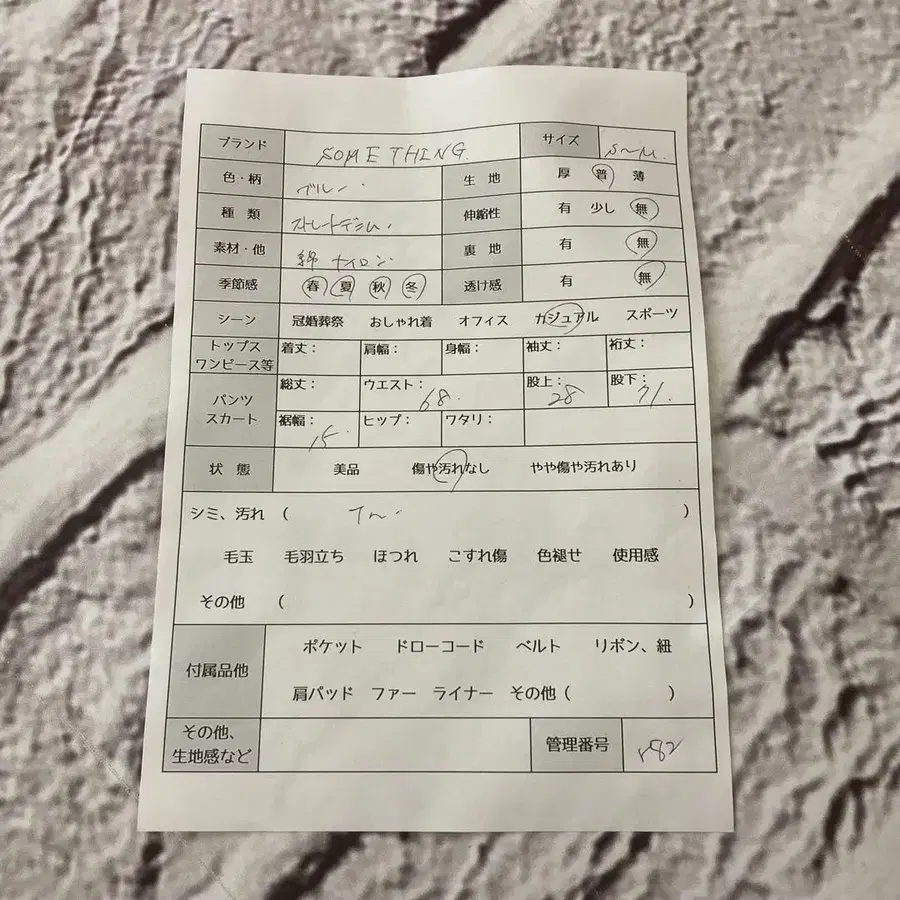 ブランド SOME THING サイズ S〜M.
色・柄 ブルー 生地 厚 普 薄
種類 ストレートデニム 伸縮性 有 少し 無
素材・他 綿 ナイロン 裏地 有 無
季節感 春 夏 秋 冬 透け感 有 無
シーン 冠婚葬祭 おしゃれ着 オフィス カジュアル スポーツ
トップス ワンピース等 着丈： 肩幅： 身幅： 袖丈： 裄丈：
パンツ スカート 総丈： ウエスト： 68. 股上： 28 股下： 71.
裾幅： 15. ヒップ： ワタリ：
状態 美品 傷や汚れなし やや傷や汚れあり
シミ、汚れ （ ）
毛玉 毛羽立ち ほつれ こすれ傷 色褪せ 使用感
その他 （ ）
付属品他 ポケット ドローコード ベルト リボン、紐
肩パッド ファー ライナー その他（ ）
その他、
生地感など 管理番号